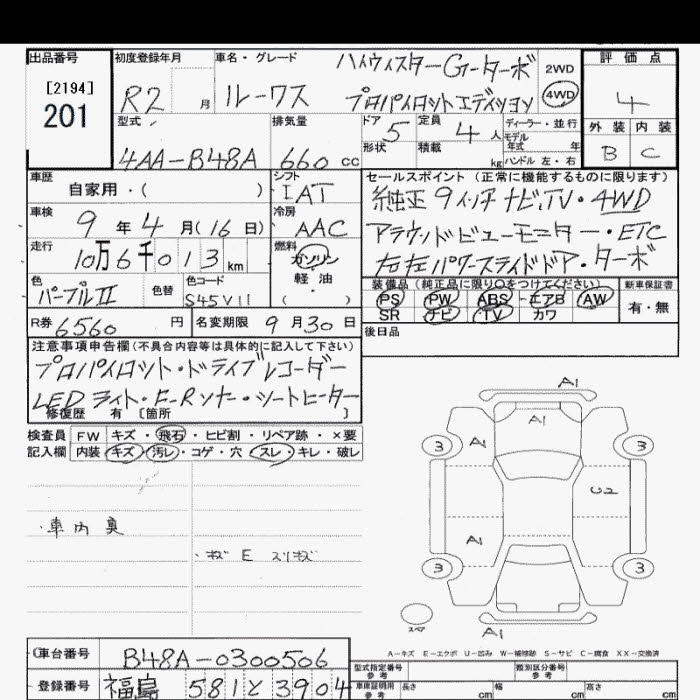 出品番号 初度登録年月 車名・グレード ハイウィスターGーターボ 2WD 評価点
[2194]
201
R2 月 ルークス プロパイロットエディション 4WD 4
型式 排気量 ドア 5 定員 4 人 ディーラー・並行 モデル 外装 内装
4AA-B48A 660 cc 形状 積載 kg 年式 年 ハンドル 左・右 B C
車歴 シフト セールスポイント(正常に機能するものに限ります)
自家用・( ) IAT 純正9インチナビ,TV・4WD
車検 冷房
9 年 4 月(16 日) AAC アラウンドビューモニター・ETC
走行 燃料
10万6千013 km ガソリン 右左パワースライドドア・ターボ
軽油
( )
色 色替 色コード 装備品(純正品に限り○をつけてください) 新車保証書
パープルII S45VII PS PW ABS エアB AW 有・無
SR ナビ TV カワ
R券 6560 円 名変期限 9 月 30 日 後日品
注意事項申告欄(不具合内容等は具体的に記入して下さい)
プロパイロット・ドライブレコーダー
LEDライト・F-Rソナー・シートヒーター
修復歴 有 [箇所 ]
検査員 FW キズ・飛石・ヒビ割・リペア跡・×要
記入欄 内装 キズ・汚レ・コゲ・穴・スレ・キレ・破レ
・車内臭
・キズ E スリキズ
A1
A1
3 A1 3
U2
A1
3 3
スペア
A1
A-キズ E-エクボ U-凹み W-補修跡 S-サビ C-腐食 XX-交換済
車台番号 B48A-0300506 型式指定番号 参考 類別区分番号 参考
登録番号 福島 581と3904 車庫証明用 参考 長さ cm 幅 cm 高さ cm